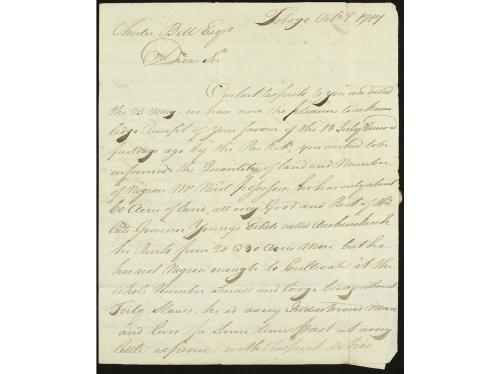 Tobago Octr 8 1787
Charles Bell Esqr
Dear Sir
Our last respects to you was dated
the 25 May, we have now the pleasure to acknow
ledge receipt of your favour of the 18 July
days ago by the Packet, you wished to be
informed the Quantity of land and Number
of Negroes Mr possesses, he has only about
60 Acres of land, all very Good and Part of the
late Governor Youngs Estate called
he Rents from 20 @ 30 Acres More but he
has not Negroes enough to Cultivate it the
whole Number small and large being about
Forty Slaves. he is a very Industrious Man
and lives for some time past at a very
little expence. with respect to his